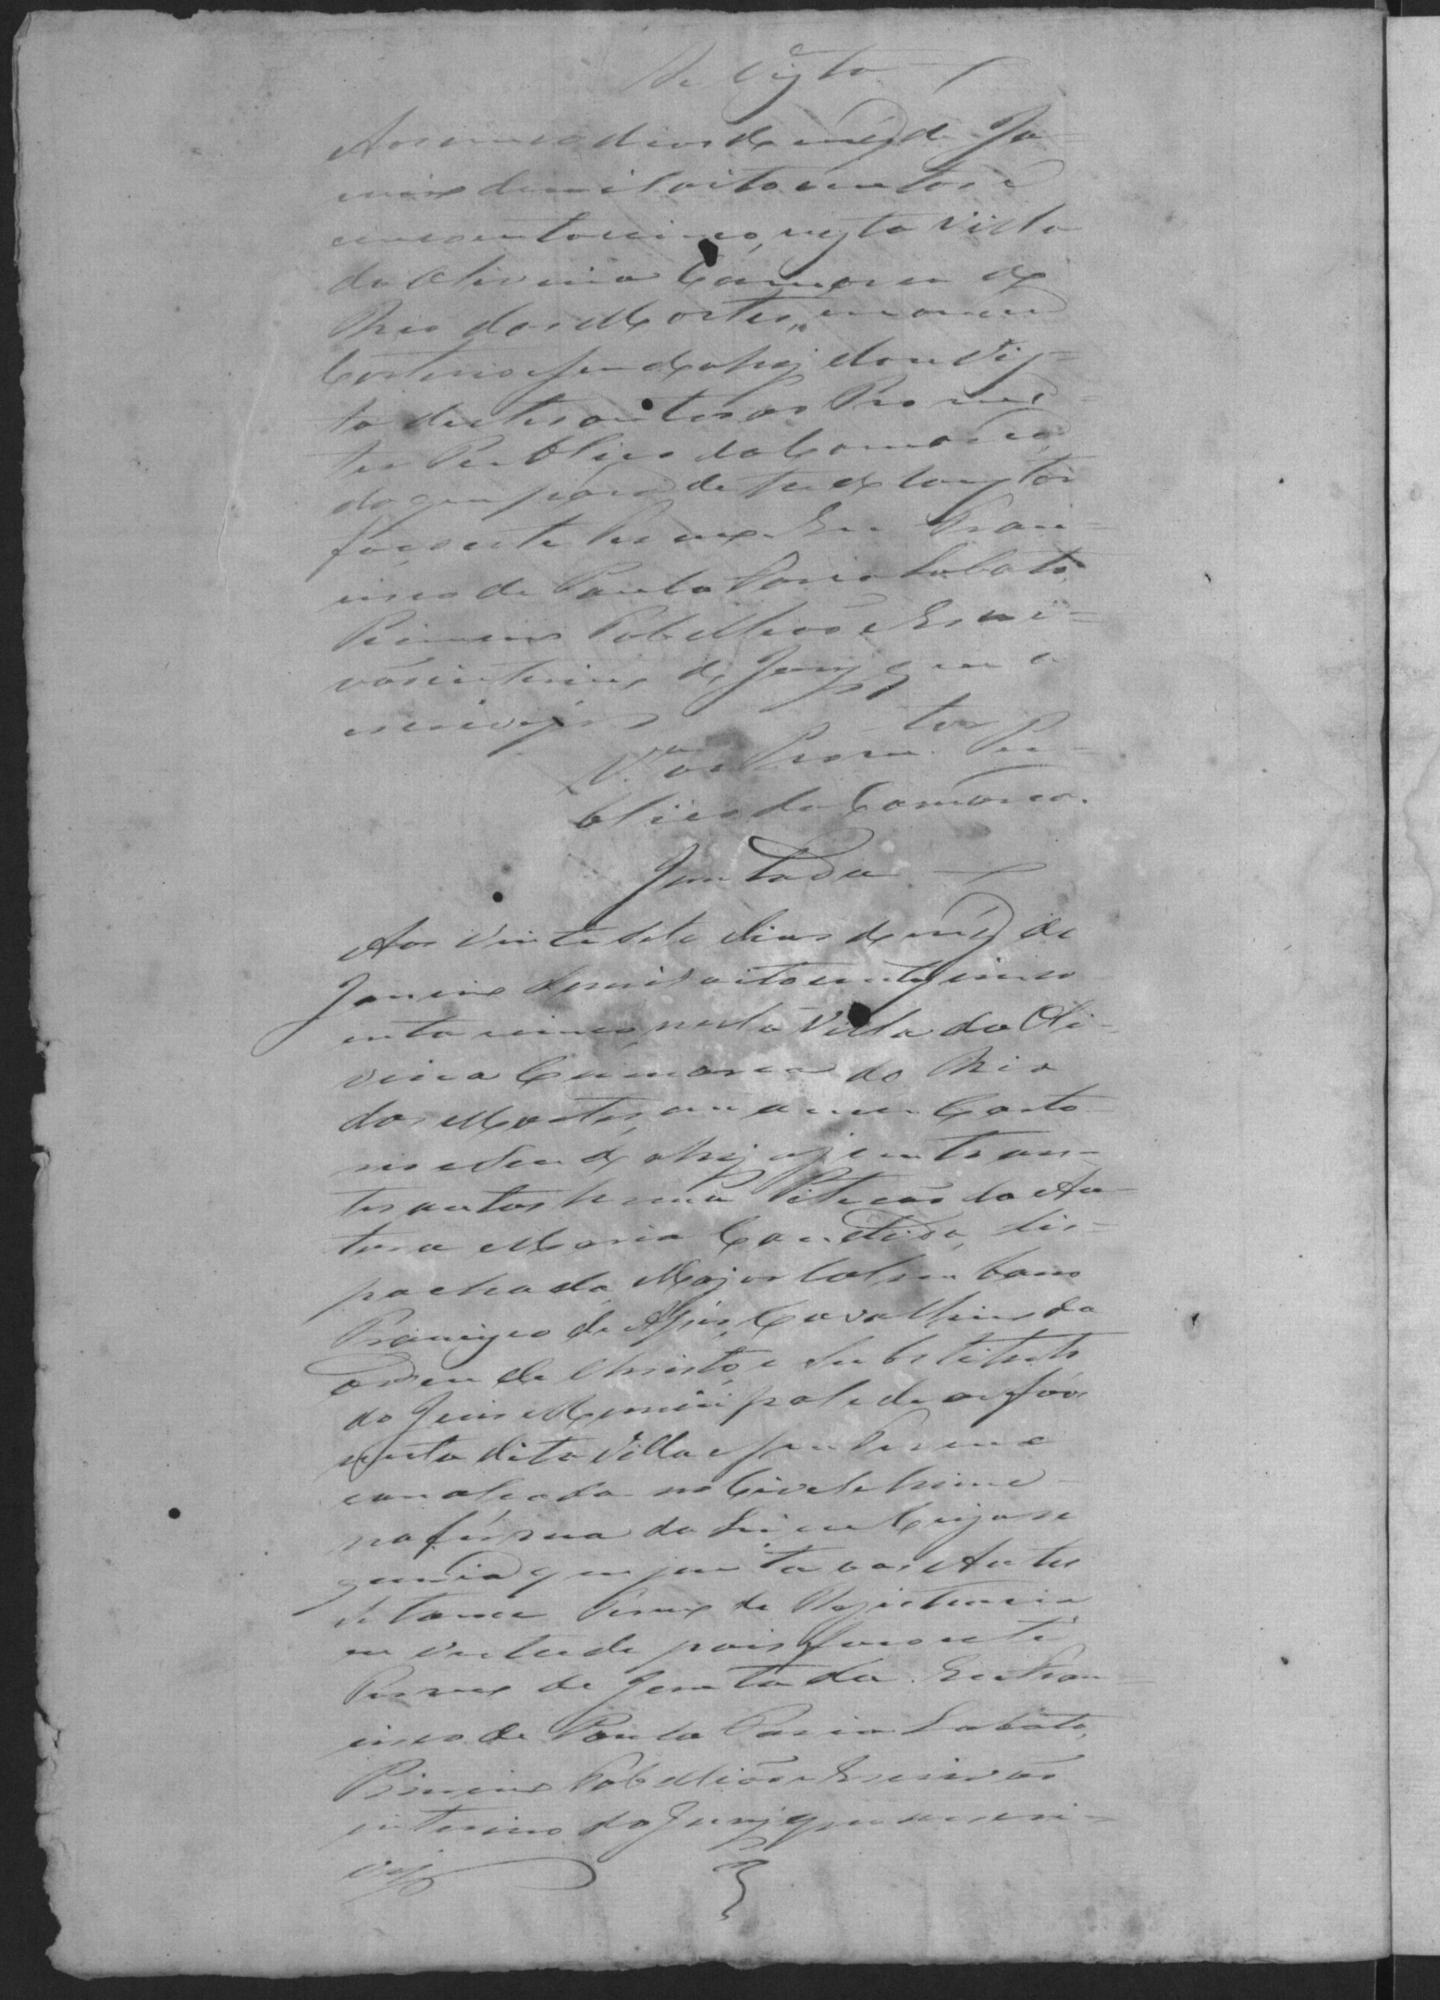 de Vista
Aos cinco dias do mez de Ja-
neiro de mil oito centos e
cincoenta cinco, nesta Villa
da Oliveira Comarca do
Rio das Mortes, em o meu
Cartorio sendo ahi dou vis-
ta destes autos ao Promo-
tor Publico da Comarca
do que para de tudo constar
faço este termo. Eu Fran-
cisco de Paula Faria Lobato
Primeiro Tabellião e Escri-
vão interino do Jury que o
escrevi
V.ta ao Prom.tor Pu-
blico da Comarca.
Juntada
Aos vinte sete dias do mez de
Janeiro de mil oito centos cinco
enta cinco, nesta Villa da Oli-
veira Comarca do Rio
das Mortes, em o meu Carto-
rio e sendo ahi ajuntei aos
autos huma Petição da Au-
tora Maria Candida, des-
pachada Major
Francisco de Assis, Cavalleiro da
Ordem de Christo, e Substituto
do Juis Municipal e de orfãos
nesta dita Villa e seu Termo
no Civel e Crime
na forma da Lei
que junta aos Autos
termo de Desistencia
em virtude pois faço este
Termo de Juntada. Eu Fran-
cisco de Paula Faria Lobato,
Primeiro Tabellião e Escrivão
interino do Jury que o escre-
vi